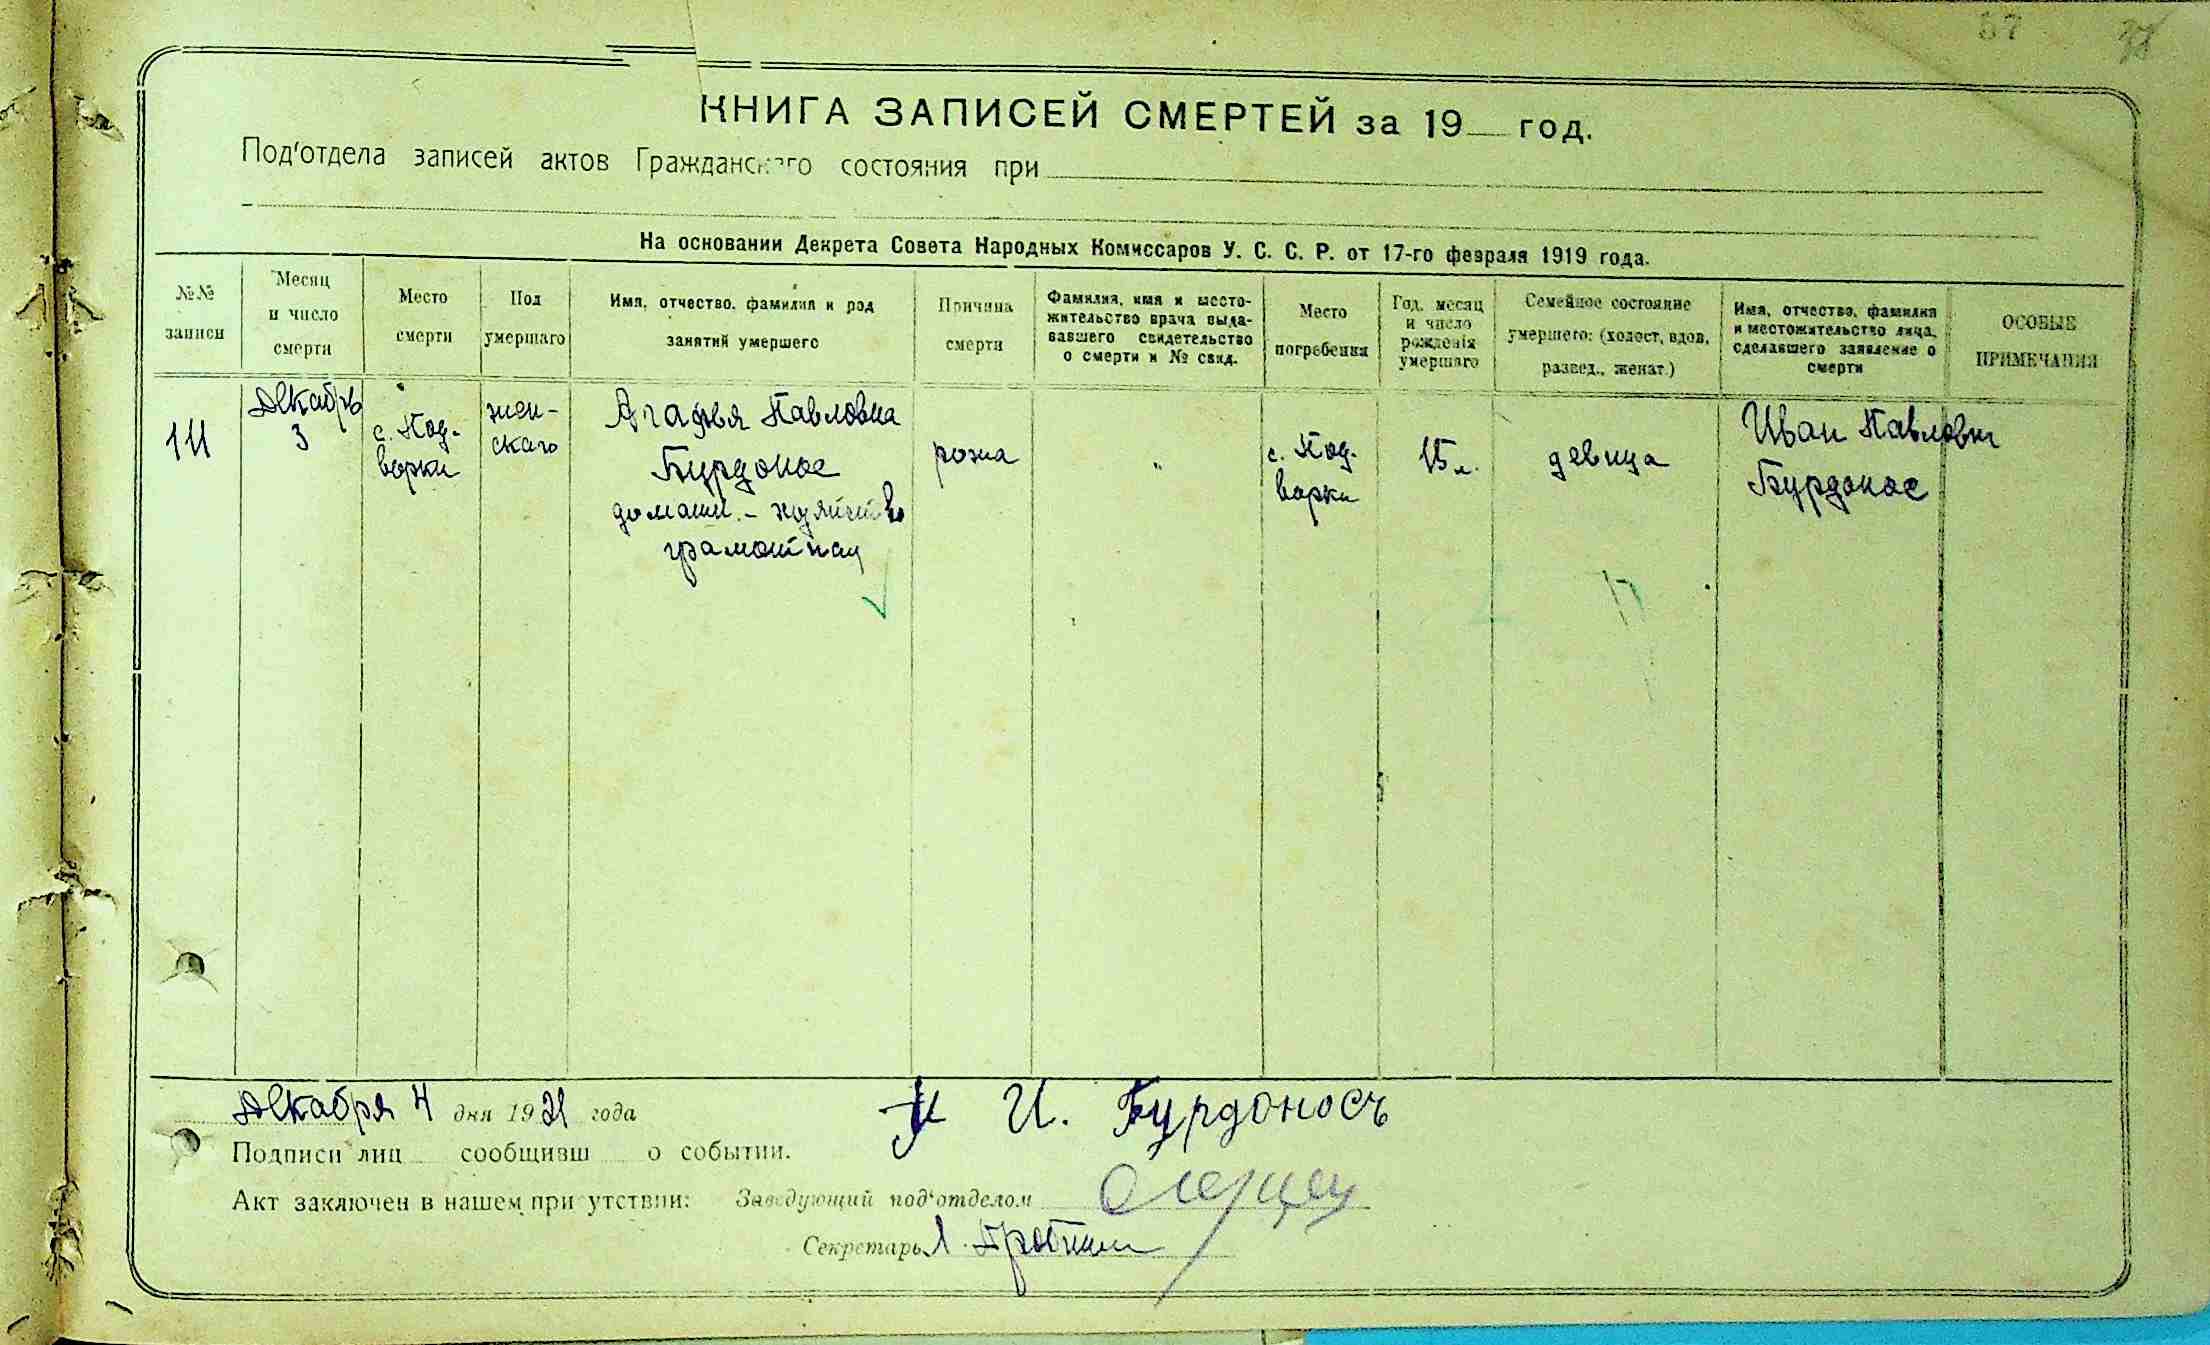 37 38
КНИГА ЗАПИСЕЙ СМЕРТЕЙ за 19 год.
Под'отдела записей актов Гражданского состояния при
На основании Декрета Совета Народных Комиссаров У. С. С. Р. от 17-го февраля 1919 года.
№№ записи
Месяц и число смерти
Место смерти
Пол умершаго
Имя, отчество, фамилия и род занятий умершего
Причина смерти
Фамилия, имя и место-
жительство врача выда-
вавшего свидетельство
о смерти и № свид.
Место погребения
Год, месяц и число рождения умершаго
Семейное состояние
умершего: (холост, вдов,
развед., женат.)
Имя, отчество, фамилия
и местожительство лица,
сделавшего заявление о
смерти
ОСОБЫЕ ПРИМЕЧАНИЯ
111
Декабрь
3
с. Под-
ворки
жен-
скаго
Агафья Павловна
Бурдонос
домаш. - хозяйство
грамотная
рожа
"
с. Под-
ворки
15 л.
девица
Иван Павлович
Бурдонос
Декабря 4 дня 1921 года
И. Бурдоносъ
Подписи лиц сообщивш о событии.
Акт заключен в нашем при утствии: Заведующий под'отделом
Секретарь